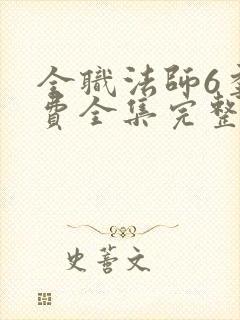 全職法師6
費全集完整
史薈文